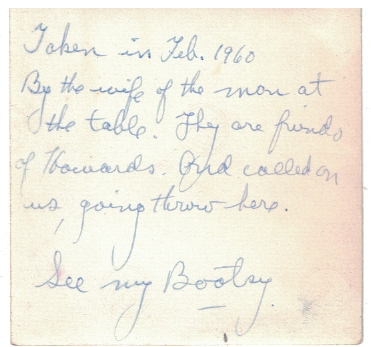 Taken in Feb. 1960
By the wife of the man at
the table. They are friends
of Howards. And called on
us, going throw here.
See my Bootsy